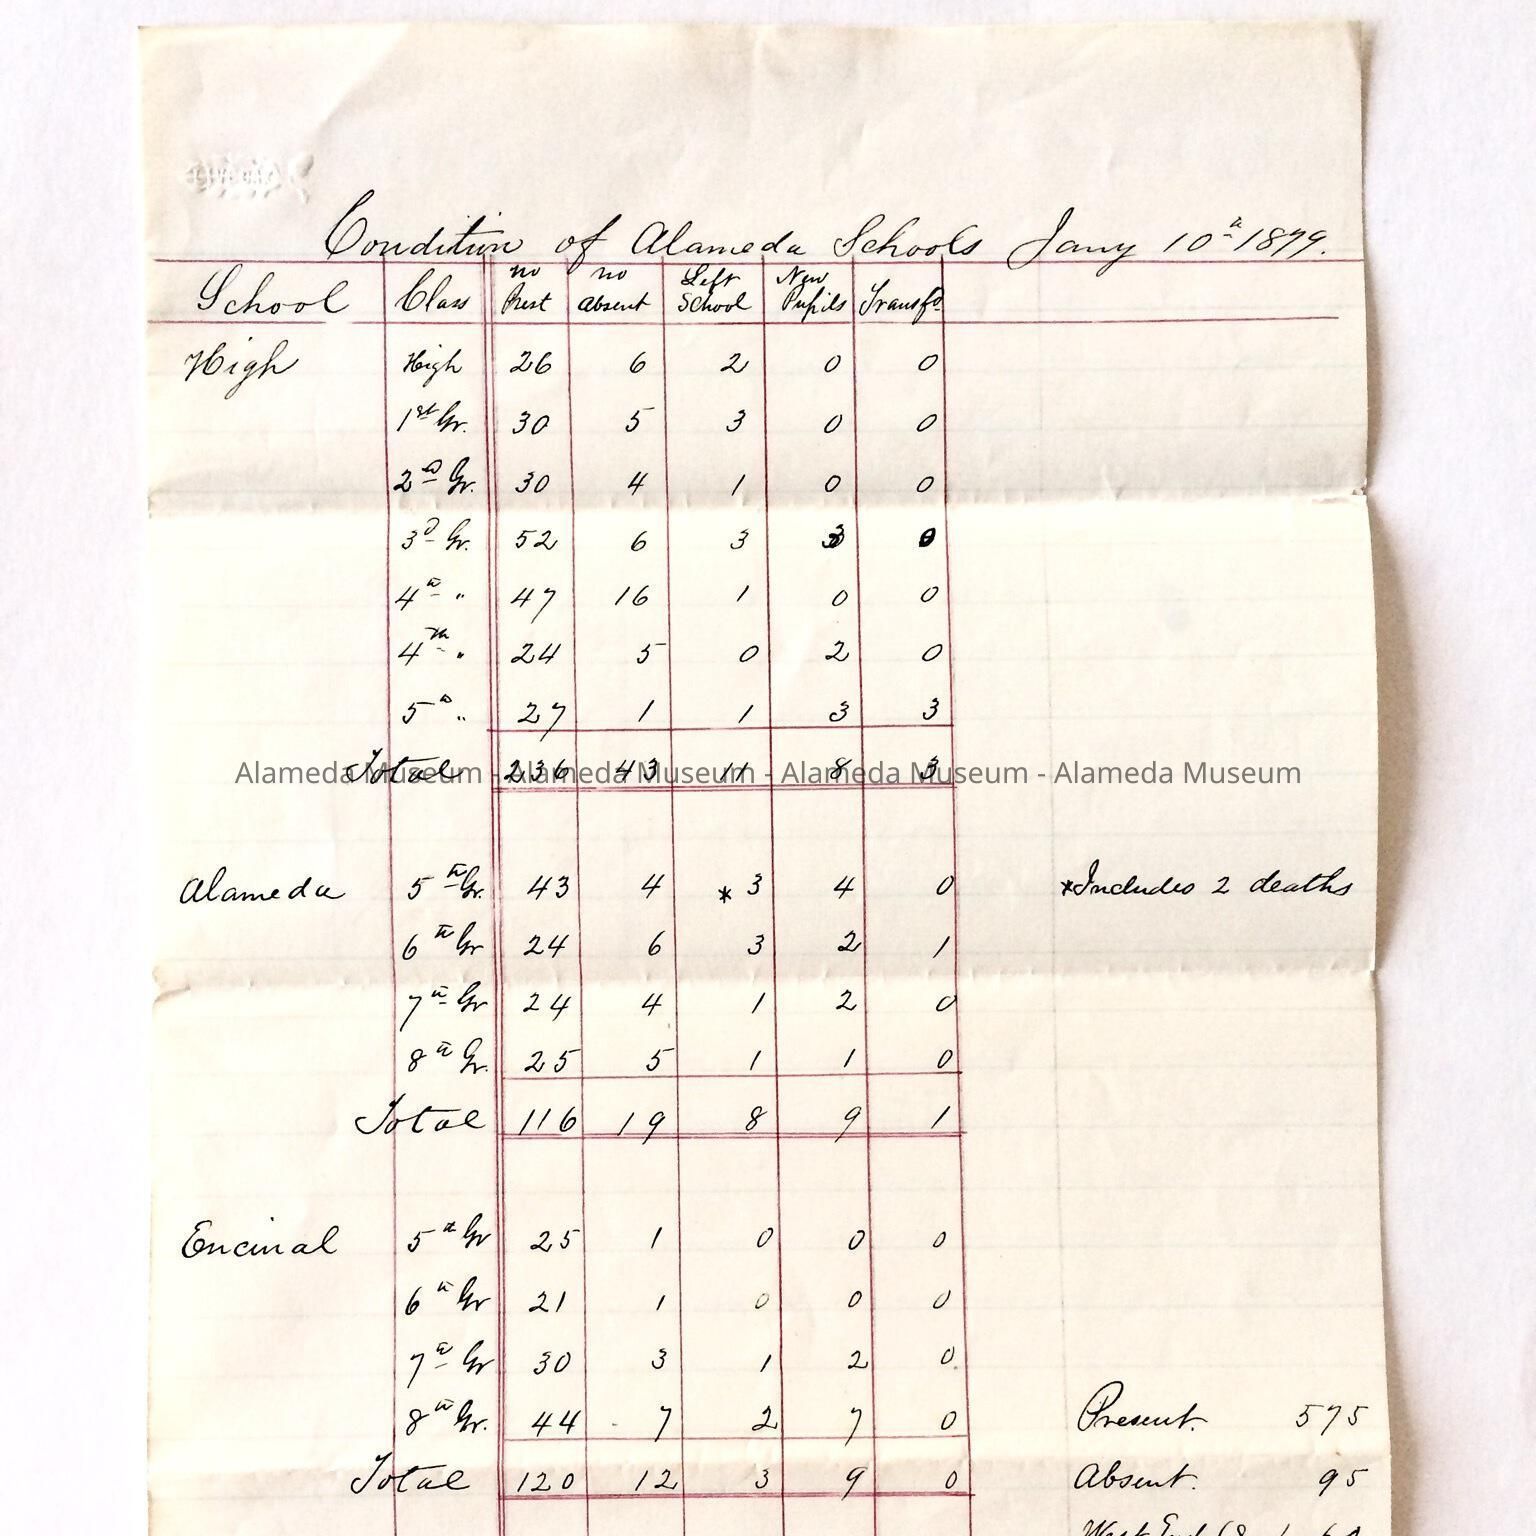 Condition of Alameda Schools Jany 10th 1879.
School Class no Prest no absent Left School New Pupils Transfd
High High 26 6 2 0 0
1st Gr. 30 5 3 0 0
2d Gr. 30 4 1 0 0
3d Gr. 52 6 3 3 0
4th " 47 16 1 0 0
4th " 24 5 0 2 0
5th " 27 1 1 3 3
Total 236 43 11 8 3
Alameda Museum - Alameda Museum - Alameda Museum - Alameda Museum
Alameda 5th Gr. 43 4 *3 4 0 *Includes 2 deaths
6th Gr 24 6 3 2 1
7th Gr 24 4 1 2 0
8th Gr. 25 5 1 1 0
Total 116 19 8 9 1
Encinal 5th Gr 25 1 0 0 0
6th Gr 21 1 0 0 0
7th Gr 30 3 1 2 0
8th Gr. 44 7 2 7 0 Present. 575
Total 120 12 3 9 0 Absent. 95
West End